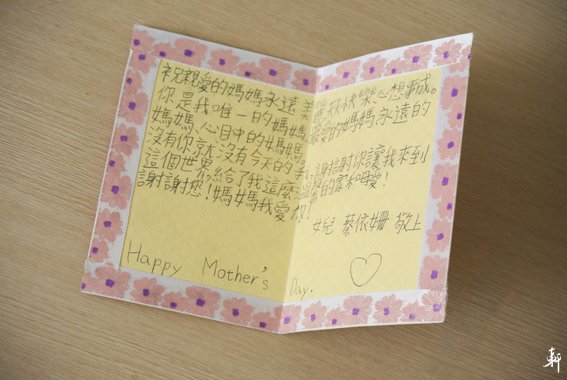 祝親愛的媽媽永遠美麗,天天快樂,心想事成。
你是我唯一的媽媽,最愛的媽媽,永遠的
媽媽,心目中的媽媽,
沒有你就沒有今天的我,謝謝你讓我來到
這個世界,給了我這麼的家和母愛!
謝謝您!媽媽我愛你!
女兒 蔡依姍 敬上
Happy Mother's Day.
軒